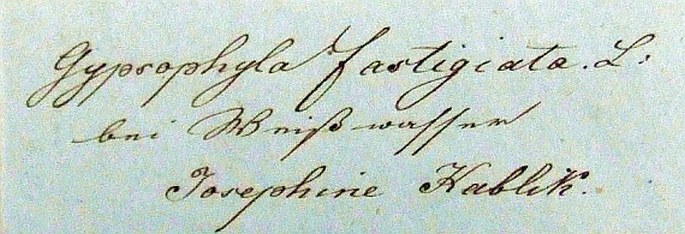 Gypsophyla fastigiata. L:
bei Weißwasser
Josephine Kablik.